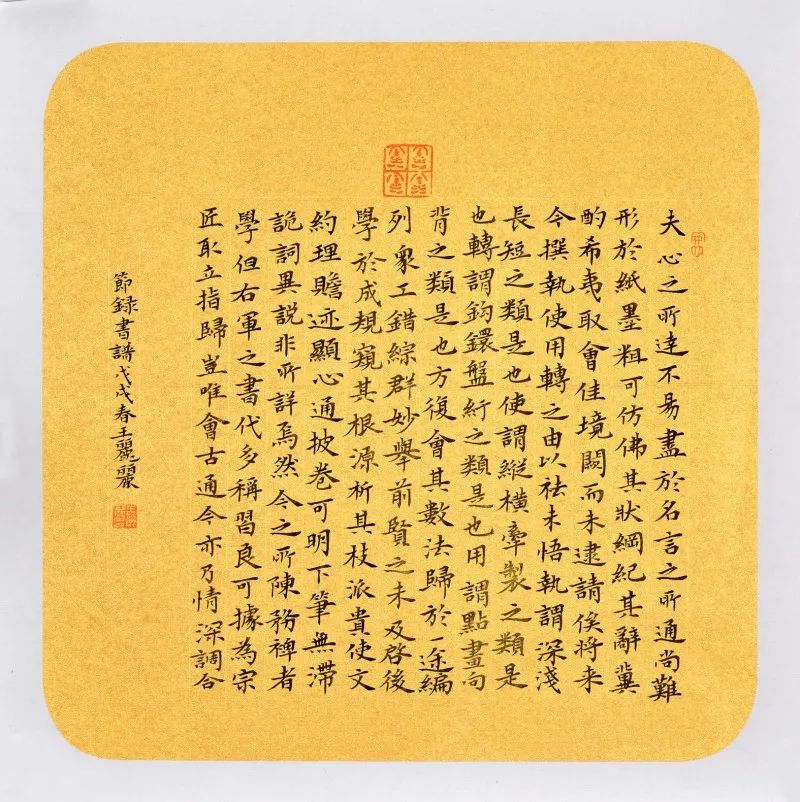 夫心之所達不易盡於名言之所通尚難
形於紙墨粗可仿佛其狀綱紀其辭冀
酌希夷取會佳境闕而未逮請俟将来
今撰執使用轉之由以祛未悟執謂深淺
長短之類是也使謂縱橫牽製之類是
也轉謂鈎鐶盤紆之類是也用謂點畫向
背之類是也方復會其數法歸於一途編
列衆工錯綜群妙舉前賢之未及啓後
學於成規窺其根源析其枝派貴使文
約理贍迹顯心通披卷可明下筆無滯
詭詞異説非所詳焉然今之所陳務裨者
學但右軍之書代多稱習良可據為宗
匠取立指歸豈唯會古通今亦乃情深調合
節録書譜戊戌春王麗麗